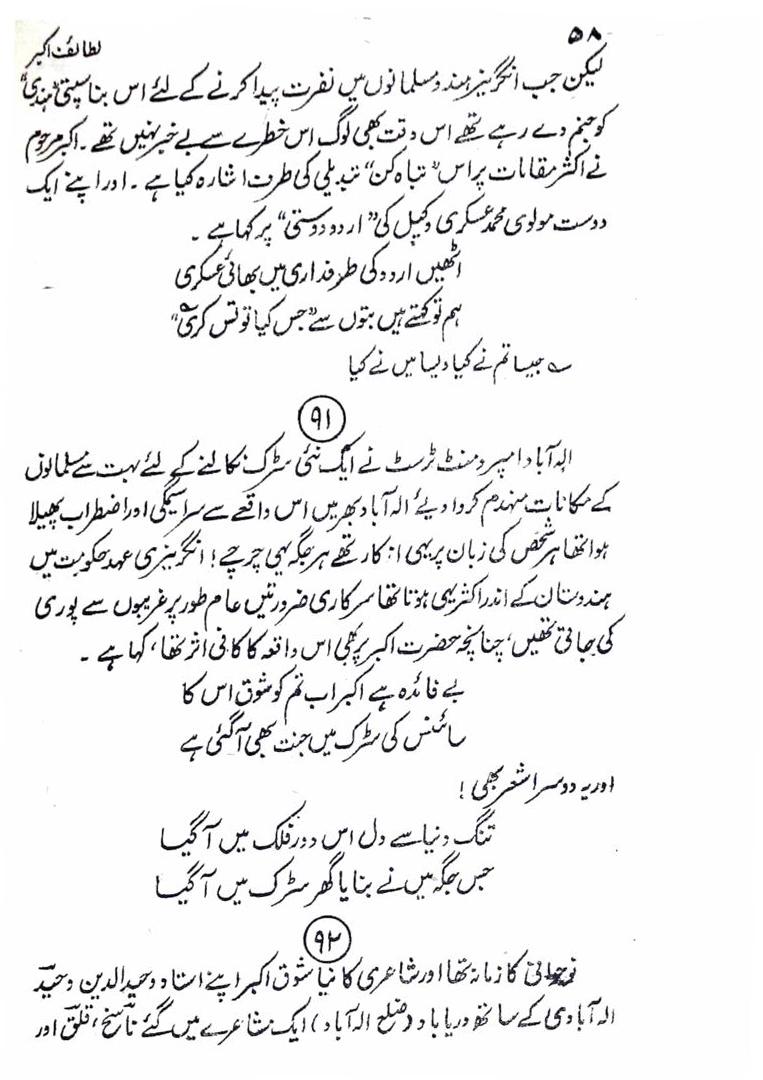 ۵۸
لطائف اکبر
لیکن جب انگریز ہندو مسلمانوں میں نفرت پیدا کرنے کے لئے اس بناسپتی "ہندی"
کو جنم دے رہے تھے اس وقت بھی لوگ اس خطرے سے بے خبر نہیں تھے ۔ اکبر مرحوم
نے اکثر مقامات پر اس "تباہ کن" تبدیلی کی طرف اشارہ کیا ہے ۔ اور اپنے ایک
دوست مولوی محمد عسکری وکیل کی "اردو دوستی" پر کہا ہے ۔
اٹھیں اردو کی طرفداری میں بھائی عسکری
ہم تو کہتے ہیں بتوں سے "جس کیا تو تس کری"
؎ جیسا تم نے کیا ویسا میں نے کیا
۹۱
الہ آباد امپرومنٹ ٹرسٹ نے ایک نئی سڑک نکالنے کے لئے بہت سے مسلمانوں
کے مکانات منہدم کروا دیئے الہ آباد بھر میں اس واقعے سے سراسیمگی اور اضطراب پھیلا
ہوا تھا ہر شخص کی زبان پر یہی اذکار تھے ہر جگہ یہی چرچے! انگریزی عہد حکومت میں
ہندوستان کے اندر اکثر یہی ہوتا تھا سرکاری ضرورتیں عام طور پر غریبوں سے پوری
کی جاتی تھیں، چنانچہ حضرت اکبر پر بھی اس واقعہ کا کافی اثر تھا، کہا ہے ۔
بے فائدہ ہے اکبر اب تم کو شوق اس کا
سائنس کی سڑک میں جنت بھی آ گئی ہے
اور یہ دوسرا شعر بھی!
تنگ دنیا سے دل اس دور فلک میں آ گیا
جس جگہ میں نے بنایا گھر سڑک میں آ گیا
۹۲
نوجوانی کا زمانہ تھا اور شاعری کا نیا شوق اکبر اپنے استاد وحید الدین وحیدؔ
الہ آبادی کے ساتھ دریاباد (ضلع الہ آباد) ایک مشاعرے میں گئے ناسخؔ، قلقؔ اور